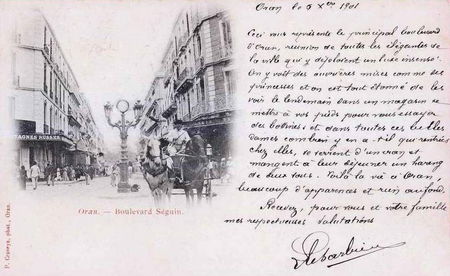 Oran le 5 Xbre 1901
Ceci vous représente le principal boulevard
d'Oran, réunion de toutes les élégantes de
la ville qui y déploient un luxe insensé.
On y voit des ouvrières mises comme des
princesses et on est tout étonné de les
voir le lendemain dans un magasin se
mettre à vos pieds pour vous essayer
des bottines et dans toutes ces belles
dames combien y en a-t-il qui rentrées
chez elles, se serrent d'un cran et
mangent à leur déjeuner un hareng
de deux sous. Voilà la vie à Oran,
beaucoup d'apparences et rien au fond.
Recevez, pour vous et votre famille
mes respectueuses salutations
Oran. — Boulevard Séguin.
P. phot., Oran.